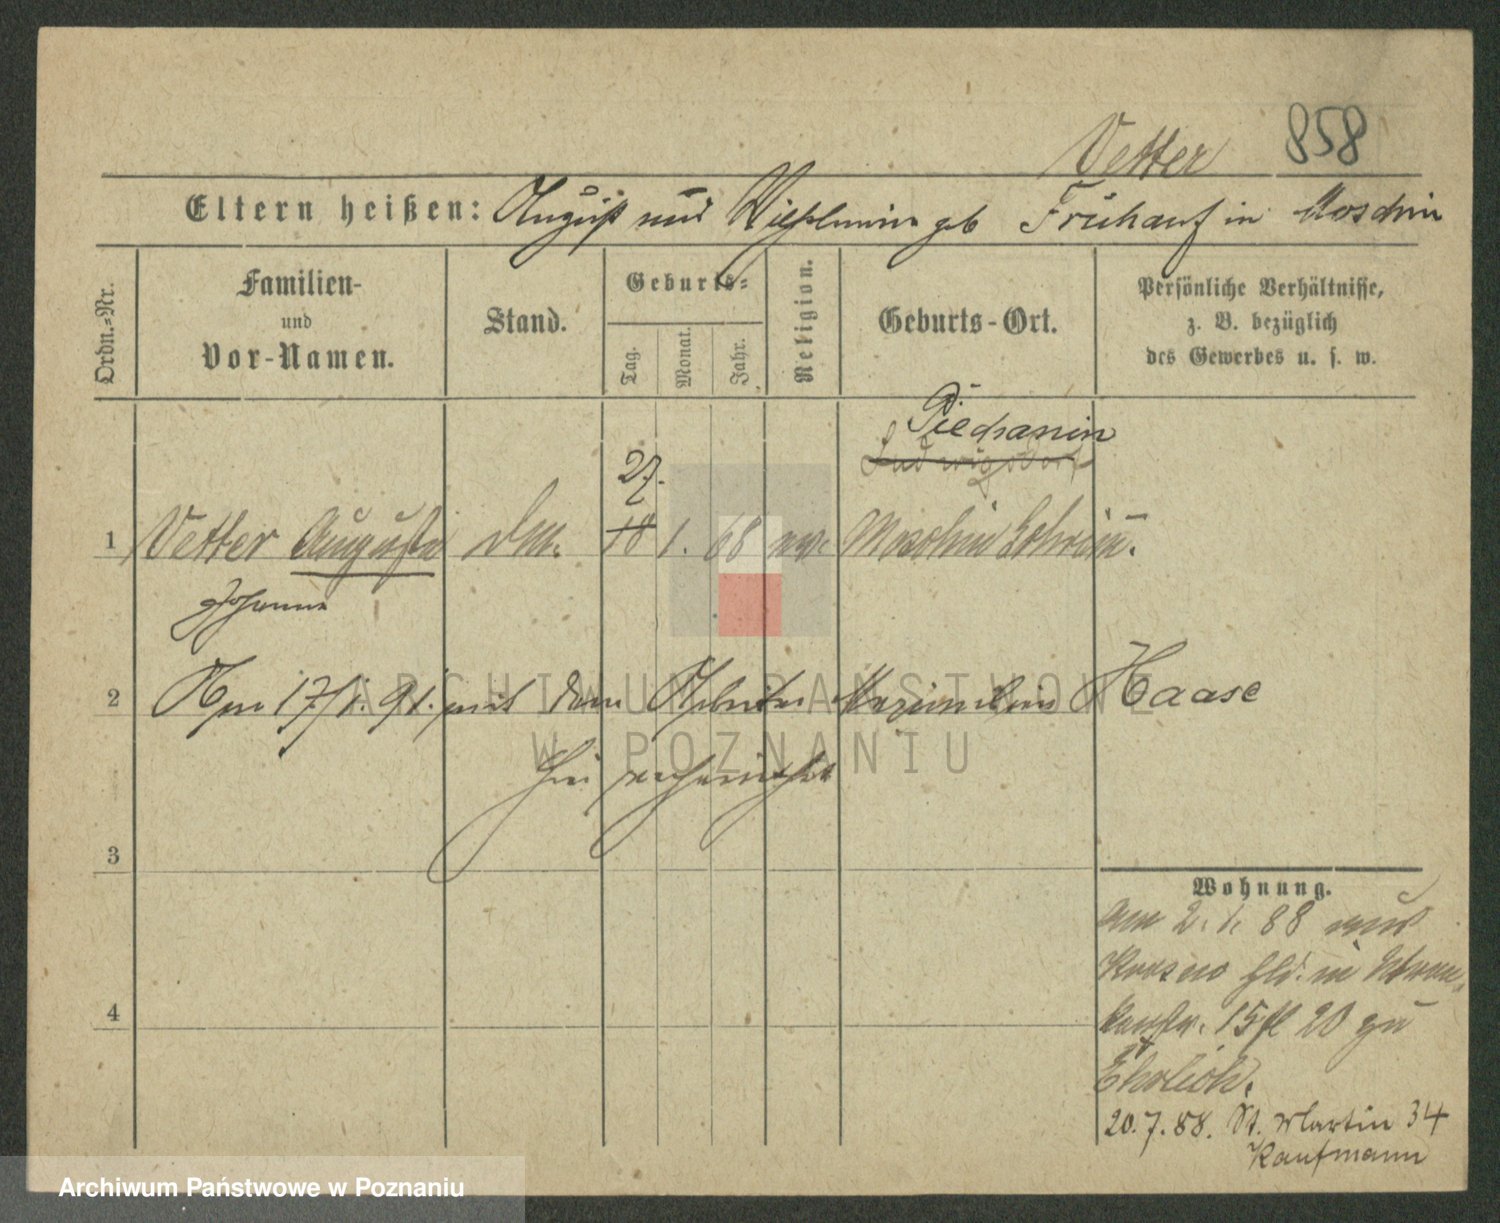 Vetter 858
Eltern heißen: August und Wilhelmine geb Frühauf in Moschin
Ordn.-Nr.
Familien-
und
Vor-Namen.
Stand.
Geburts-
Tag.
Monat.
Jahr.
Religion.
Geburts-Ort.
Persönliche Verhältnisse,
z. B. bezüglich
des Gewerbes u. s. w.
Piechanin
Ludwigsdorf
27.
1 Vetter Auguste 18 1. 68 ev. Moschin Schrimm.
Johanna
2 Am 17/1. 91. mit dem Arbeiter Maximilian Haase
hier verheirathet
3
4
Wohnung.
am 2. 1. 88 aus
in
15 20 zu
Ehrlich.
20.7.88. St. Martin 34
Kaufmann
ARCHIWUM PAŃSTWOWE
W POZNANIU
Archiwum Państwowe w Poznaniu